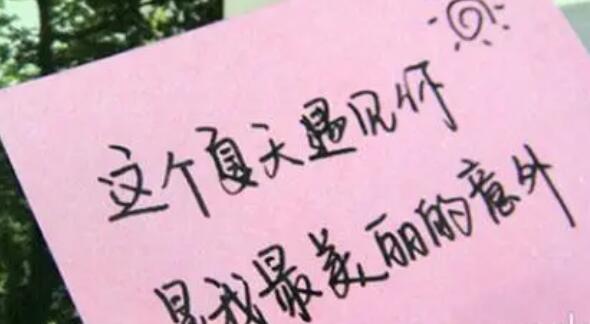 这个夏天遇见你
是我最美丽的意外